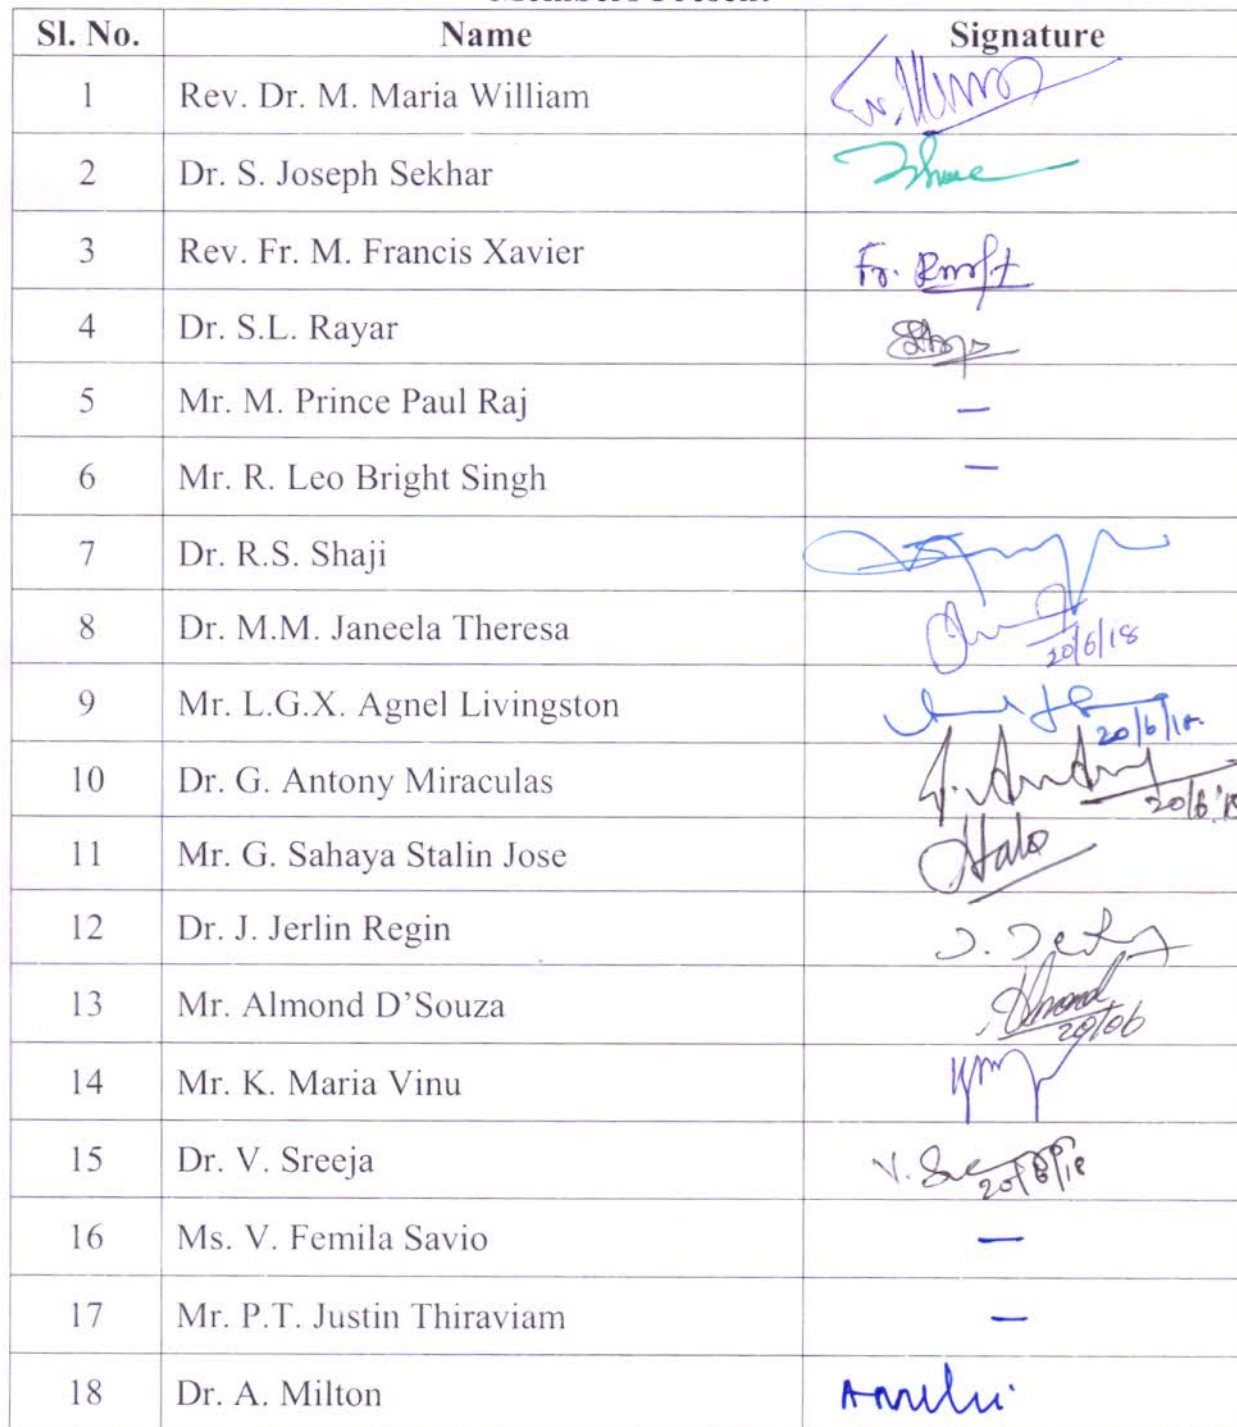 Sl. No. Name Signature
1 Rev. Dr. M. Maria William
2 Dr. S. Joseph Sekhar
3 Rev. Fr. M. Francis Xavier Fr.
4 Dr. S.L. Rayar
5 Mr. M. Prince Paul Raj –
6 Mr. R. Leo Bright Singh –
7 Dr. R.S. Shaji
8 Dr. M.M. Janeela Theresa 20/6/18
9 Mr. L.G.X. Agnel Livingston 20/6/18
10 Dr. G. Antony Miraculas 20/6/18
11 Mr. G. Sahaya Stalin Jose
12 Dr. J. Jerlin Regin
13 Mr. Almond D'Souza 20/06
14 Mr. K. Maria Vinu
15 Dr. V. Sreeja V. 20/6/18
16 Ms. V. Femila Savio –
17 Mr. P.T. Justin Thiraviam –
18 Dr. A. Milton